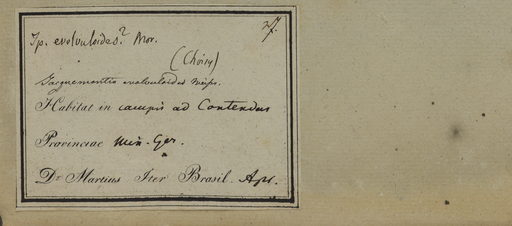 Ip. evolvuloides? Mor.
(Choisy)
Jacquemontia evolvuloides Meisn.
Habitat in campis ad Contendas
Provinciae Min. Ger.
Dr Martius Iter Brasil. Apr.